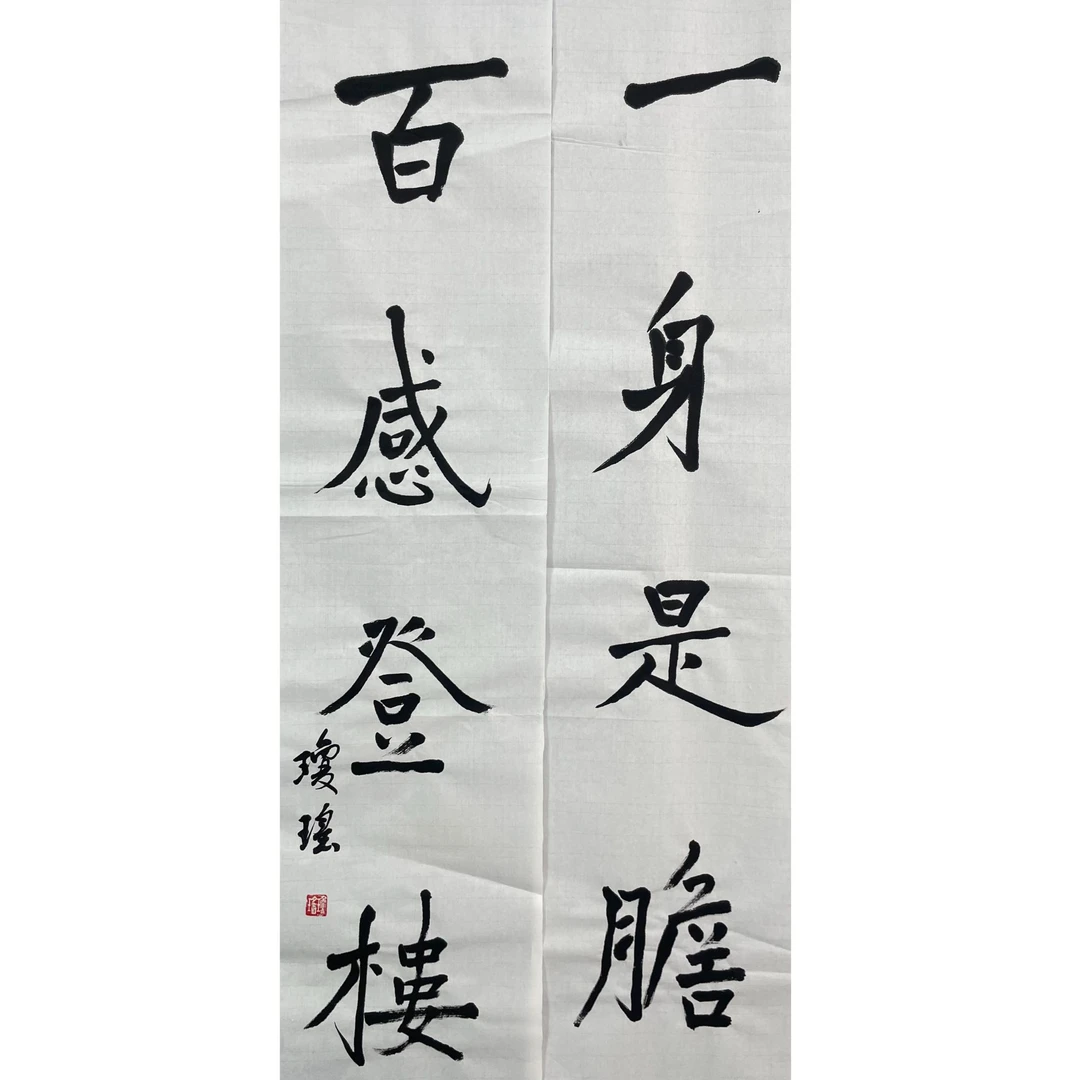 一身是膽
百感登樓
瓊瑤